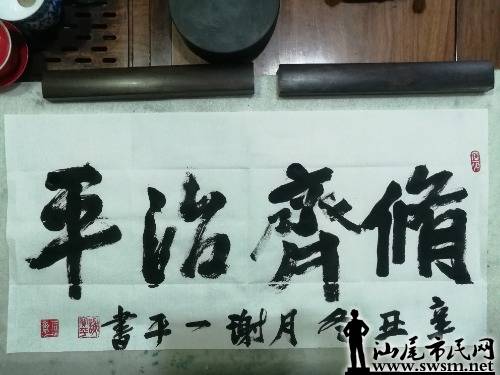 脩齊治平
辛丑冬月謝一平書
汕尾市民网
www.swsm.net